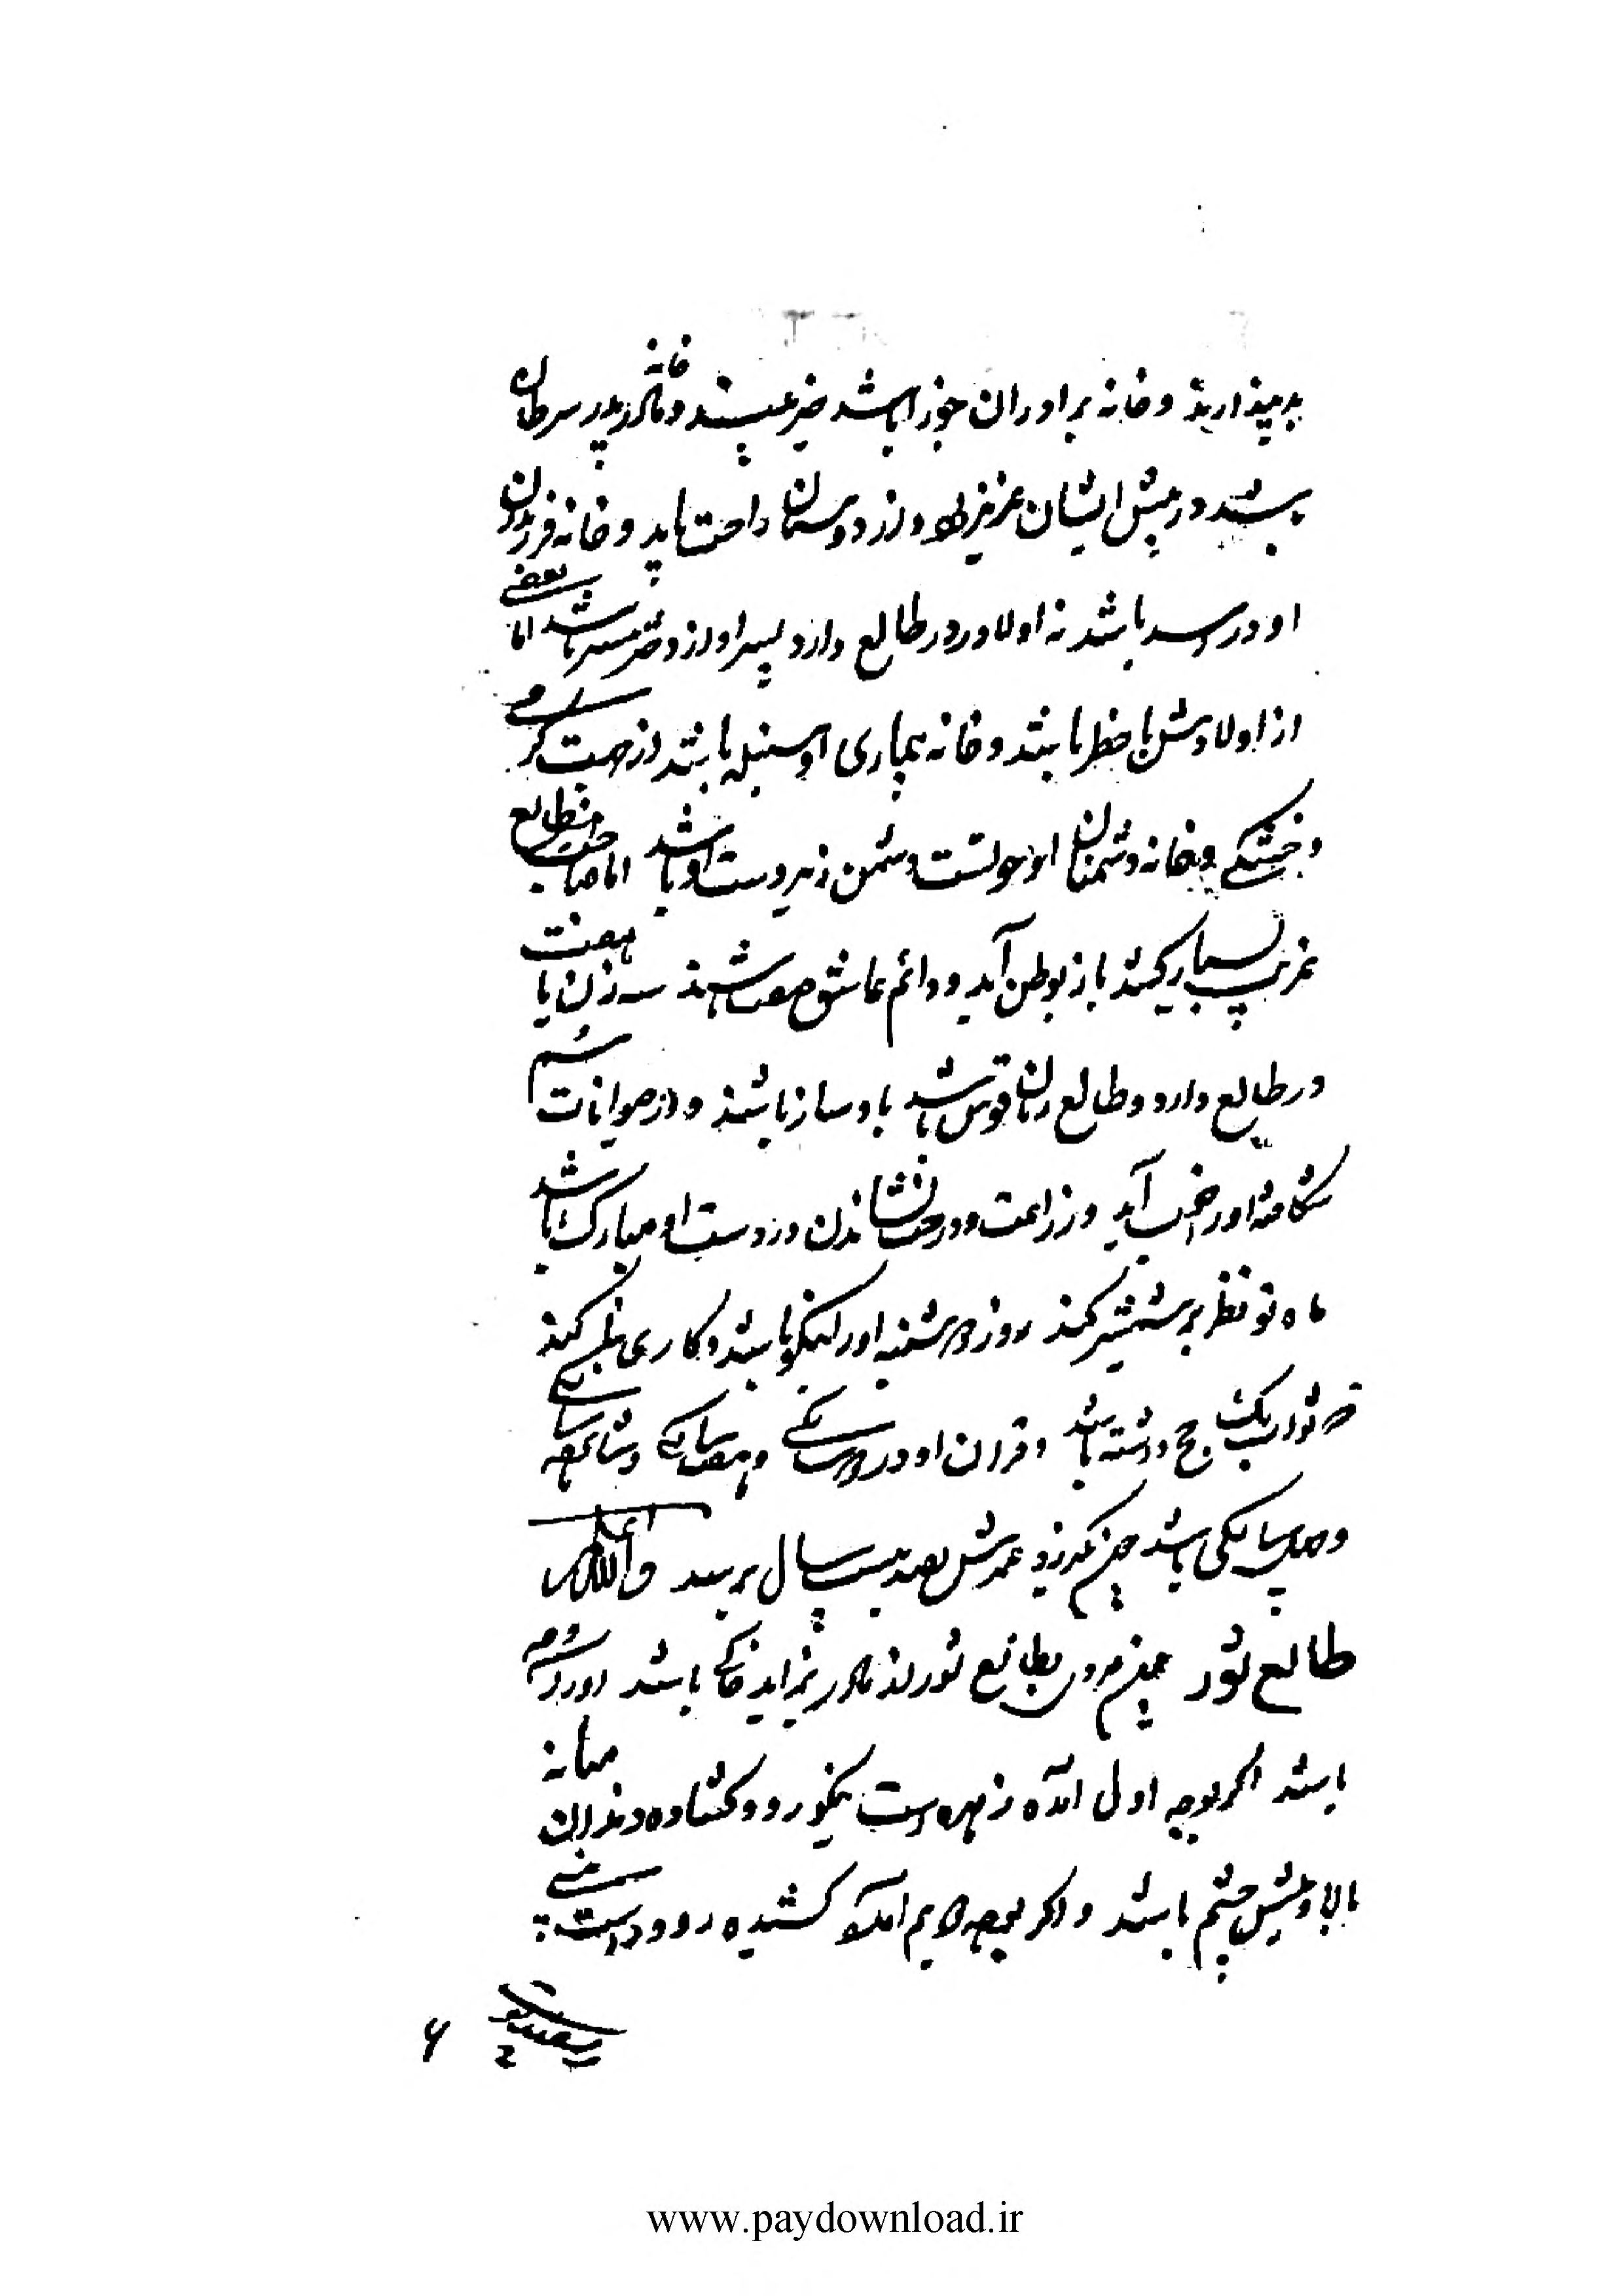 بد پندارند و خانه براوران جوزا باشد خیر نبیند و خانه مادر و پدر سرطان
باشد در پیش ایشان عزیز بود و از دوستان راحت یابد و خانه فرزندان
او در اسد باشد نه اولاد در طالع دارد پسر او از دختر بیشتر باشد اما بعضی
از اولادش با خطر باشد و خانه بیماری او سنبله باشد از جهت گرمی
و خشکی و خانه دشمنان او حوتست دشمن زیر دست او باشد اما صاحب طالع
غریب بسیار کشد باز بوطن آید و دائم عاشق صفت باشد سه زن یا هفت
در طالع دارد و طالع زنان قوس باشد با او ساز باشند و از حیوانات سم
شکافته او را خوب آید و زراعت و درخت نشاندن در دست او مبارک باشد
ماه نو نظر بر شمشیر کند روز شنبه او را نیکو باشد و کاری
ثواب یک حج داشته باشد و قران او در سالگی و سالگی و سالگی
و سالگی باشد چون بگذرد عمرش بصد بیست سال برسد والله اعلم
طالع ثور چون مردی بطالع ثور از مادر بزاید خاکی باشد
باشد اگر بوجه اول آمده زهره است نیکو رو و گشاده دندان میانه
بالا و میش چشم باشد و اگر بوجه دویم آمده کشیده رو و راست بینی
۶
www.paydownload.ir